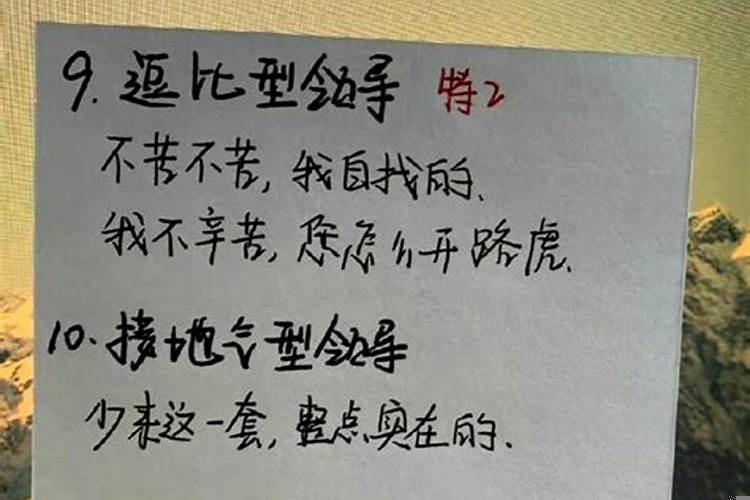 9. 逗比型领导 特2
不苦不苦, 我自找的.
我不辛苦, 您怎么开路虎.
10. 接地气型领导
少来这一套, 整点实在的.